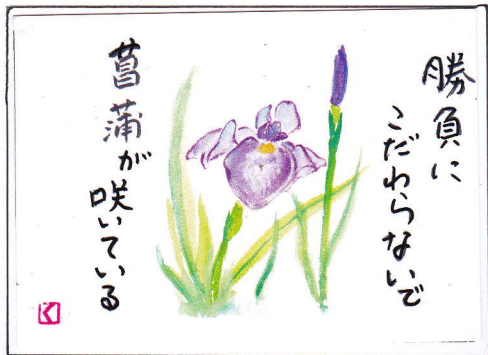 勝負に
こだわらないで
菖蒲が
咲いている
く